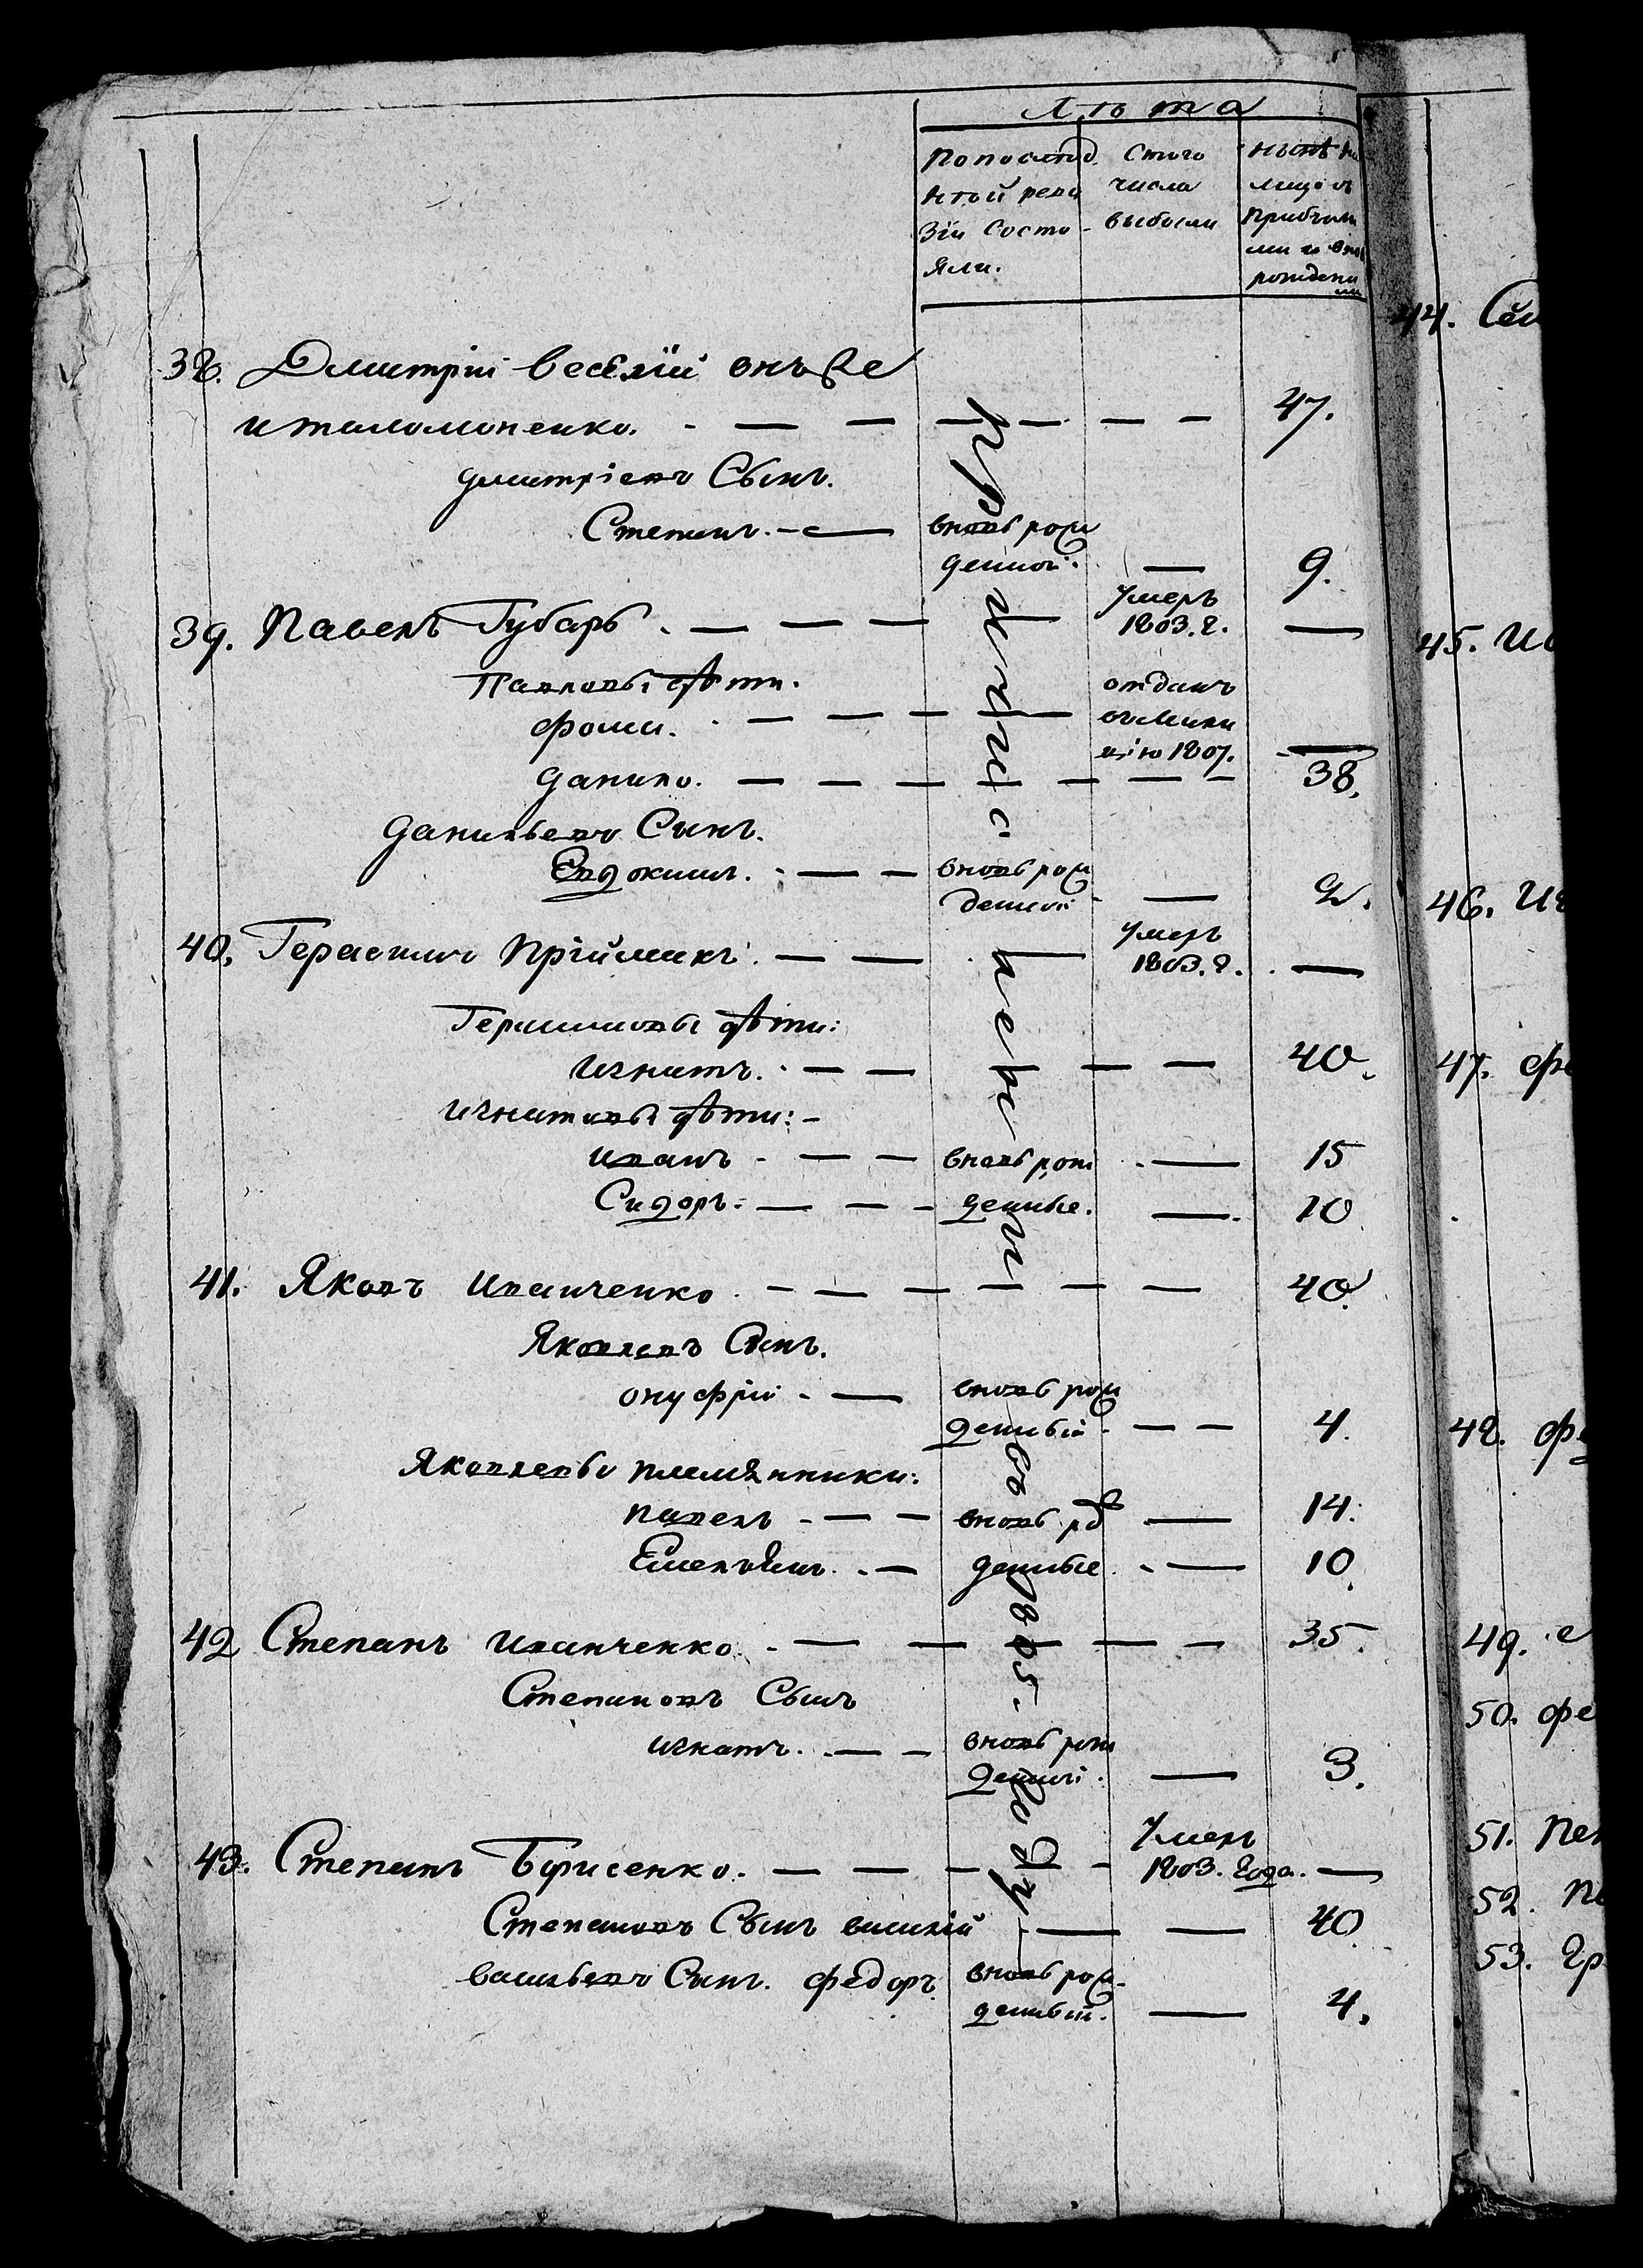 Лѣта
По послѣд
нѣй реви
зіи состо-
яли.
С того
числа
выбыли
Нынѣ на
лицо съ
прибылы
ми и внов
рожденн
ми
38. Дмитрій веселій онъ же
италомоненко. 47.
дмитріевъ Сынъ.
Степанъ. вновь рож
денной. 9.
39. Павелъ Губарь. умеръ
1803. г.
Павловы дѣти.
фома. отданъ
в милли
цію 1807.
данило. 38.
данильевъ Сынъ.
Евдокимъ. вновь рож
денной 2.
40. Герасимъ Пріймакъ. умеръ
1803. г.
Герасимовы дѣти:
игнатъ. 40.
игнатовы дѣти:
иванъ вновь рож 15
Сидоръ. денные. 10
41. Яковъ иванченко 40.
Яковлевъ Сынъ.
онуфрій вновь рож
денный 4.
Яковлевы племянники:
павелъ вновь рож 14.
Емельянъ. денные 10.
42 Степанъ иванченко. 35.
Степановъ Сынъ
игнатъ. вновь рож
денной. 3.
43. Степанъ Борисенко. умеръ
1803. года.
Степановъ Сынъ василій 40
васильевъ Сынъ. федоръ. вновь рож-
денный. 4.
причислены въ 1805. году
44. Сем
45. И
46. Иг
47. фе
48. фе
49. е
50. фе
51. пет
52. па
53. гр